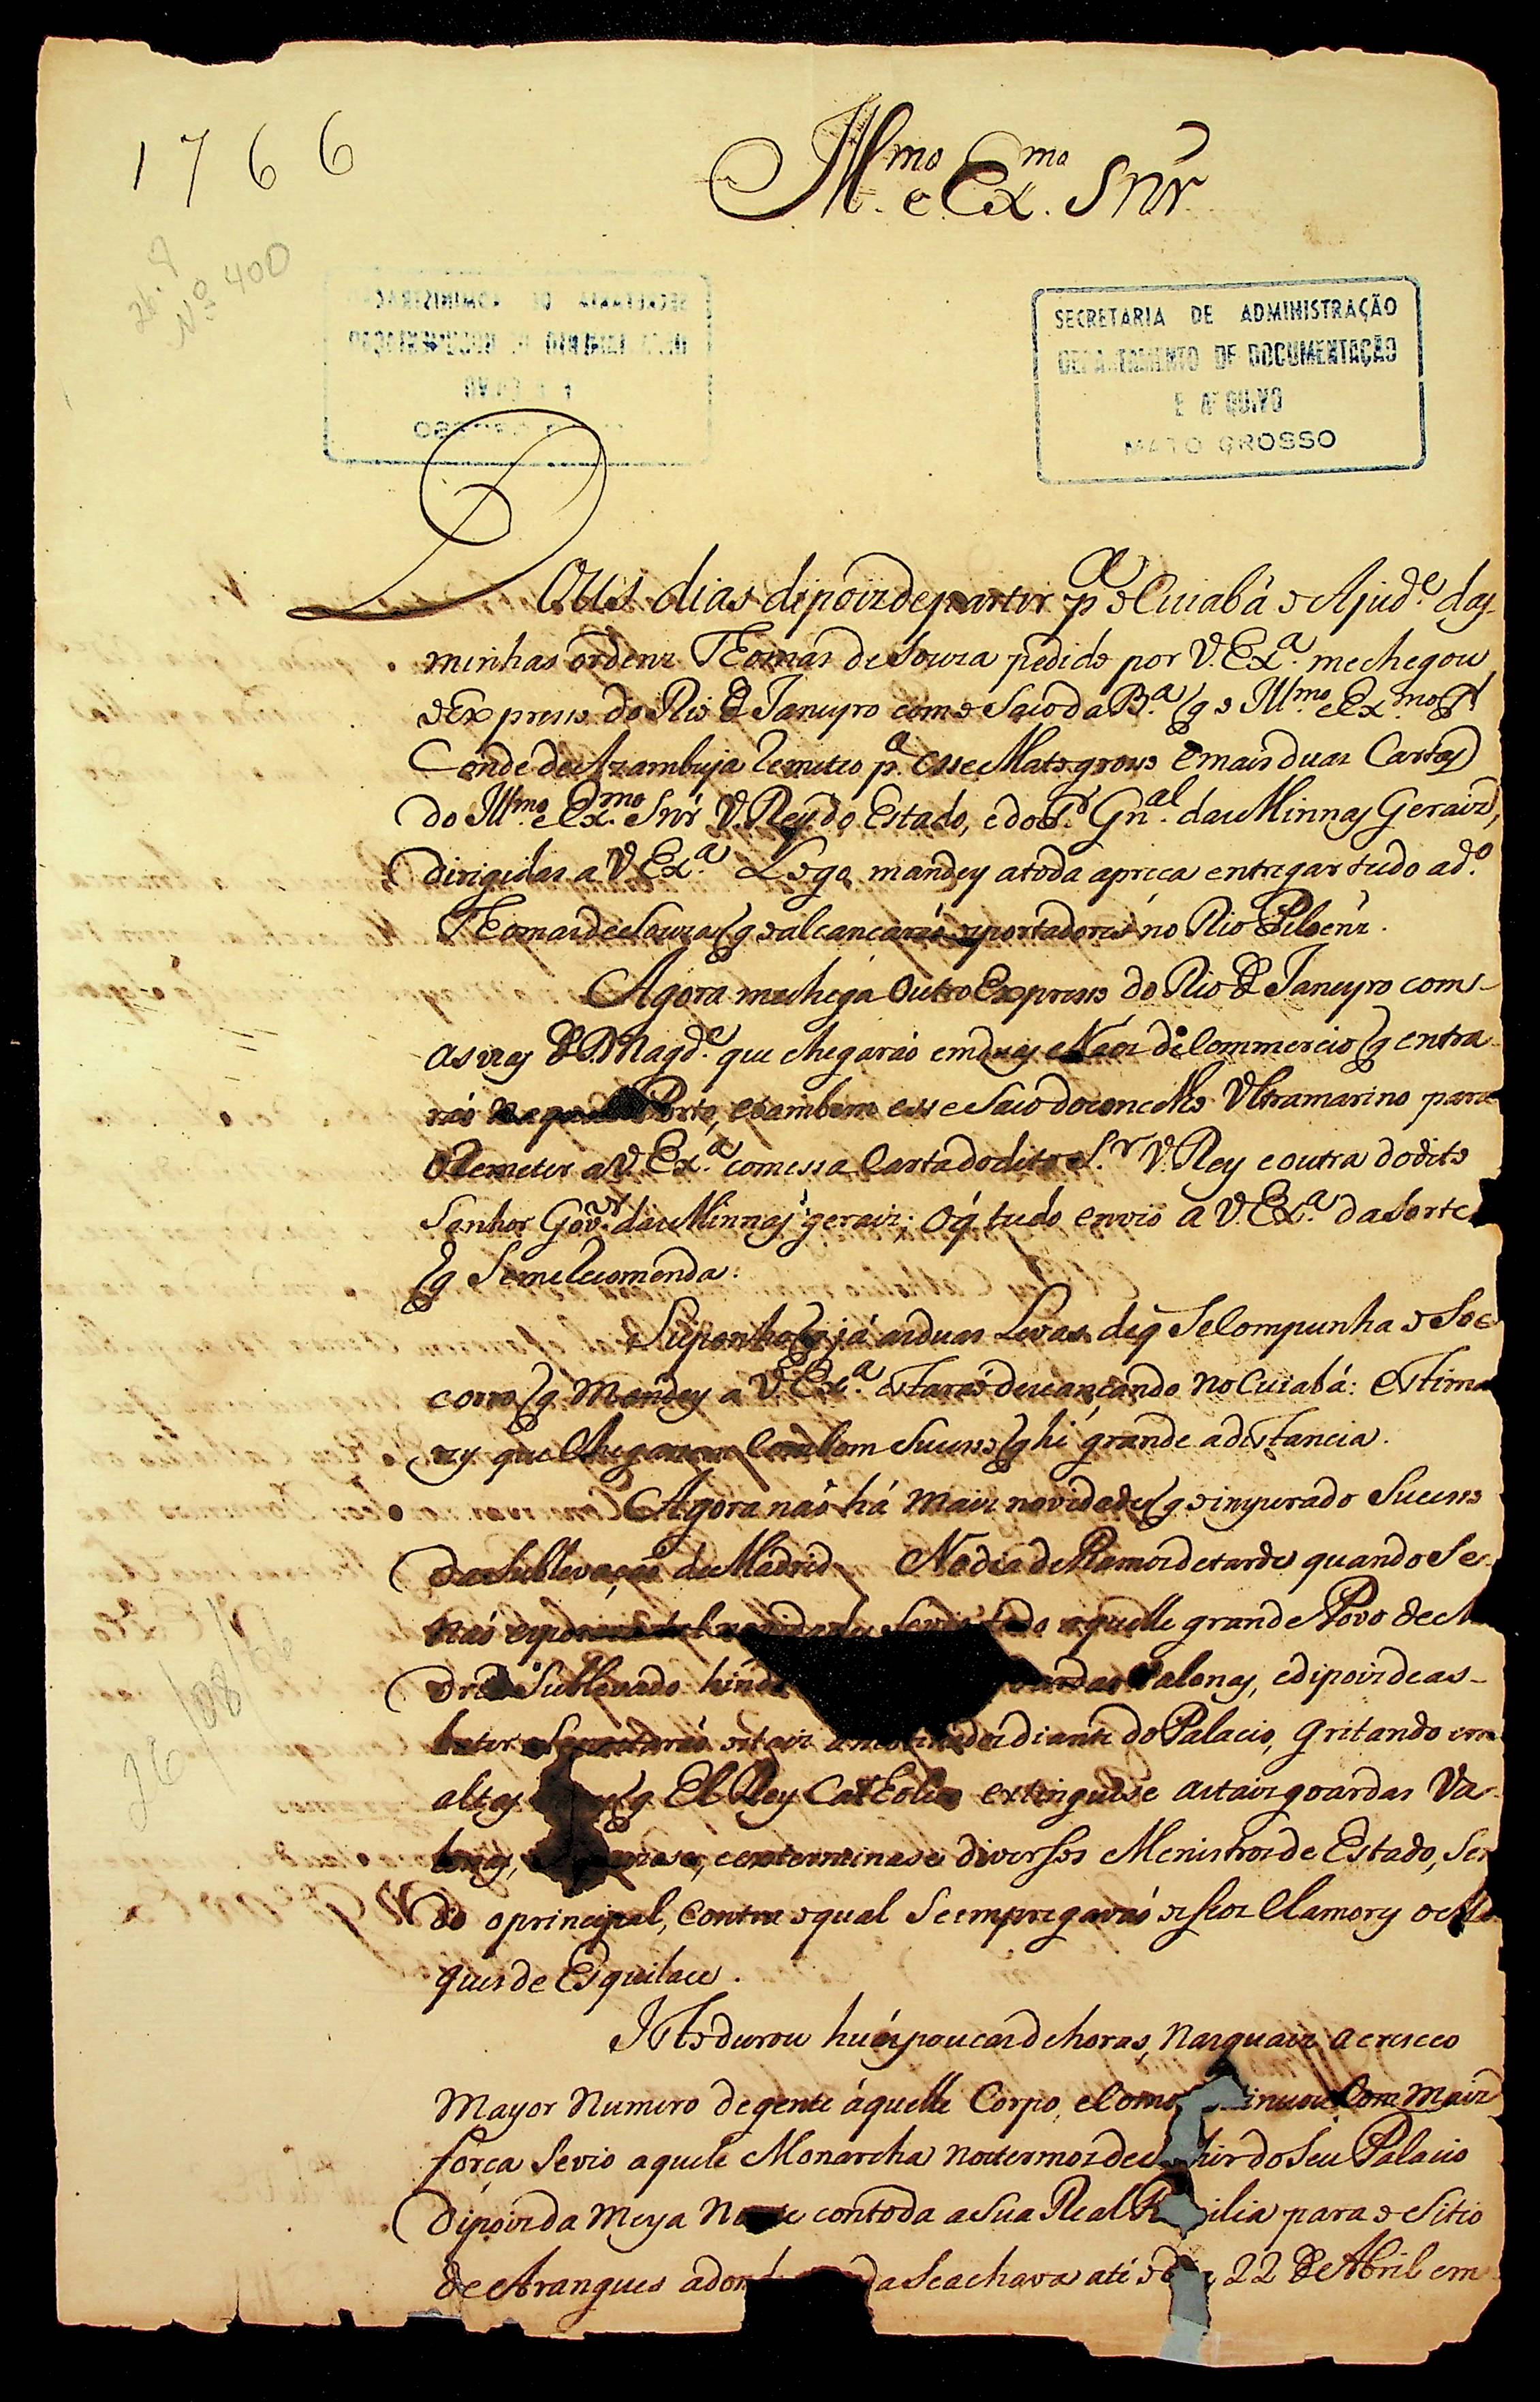 1766
Ill.mo e Ex.mo Snr
26. 9
Nº 400
SECRETARIA DE ADMINISTRAÇÃO
DEPARTAMENTO DE DOCUMENTAÇÃO
E ARQUIVO
MATO GROSSO
Dous dias dipois de partir p.a o Cuiabá o Ajud.e das
minhas ordens Thomás de Souza pedido por V. Ex.a me chegou
o Expresso do Rio de Janeyro com o Saco da B.a q o Ill.mo e Ex.mo S.r
Conde de Azambuja remeteo p.a esse Matogroso e mais duas Cartas
do Ill.mo e Ex.mo Snr V. Rey do Estado, e do S.r Gn.al das Minnas Gerais,
dirigidas a V Ex.a Logo mandey a toda apreça entregar tudo ad.o
Thomas de Souza q o alcançarão os portadores no Rio
Agora me chega outro Expresso do Rio de Janeyro com
as vias de S. Magd.e que chegarão em duas Naos de Commercio q entra
rão Porto, e tambem esse Saco do concelho Ultramarino para
o Remeter a V. Ex.a com essa Carta do dito S.r V. Rey e outra do dito
Senhor Gov.or das Minnas gerais; o q̃ tudo envio a V. Ex.a da sorte
q Se me recomenda.
Suponho q já as duas Levas de q̃ Se Compunha o Soc
corro q Mandey a V. Ex.a estarão descançando no Cuiabá: estima
rey que Chegacem Com bom Sucesso q hé grande a distancia.
Agora não há mais novidade q o inxurado Sucesso
da Sublevação de Madrid No dia de Ramos de tarde quando Se
não aquelle grande Povo de M
drid Sublevado hindo ardas Valonas, e dipois de as
bater diante do Palacio, gritando em
altas q El Rey Catholico extinguise as tais guardas Va
lonas, e exterminase diversos Menistros de Estado, sen
do o principal, contra o qual Se empregavão os seos Clamores o M
ques de Esquilace.
Isto durou huãs poucas de horas, nas quais acresceo
Mayor Numero de gente áquelle Corpo, e como inuou Com mais
força Se vio aquele Monarcha nos termos de hir do Seu Palacio
Dipois da Meya Noute con toda a Sua Real ilia para o Sitio
de Aranques adon da Se achava até o dia 22 de Abril em
26/08/66